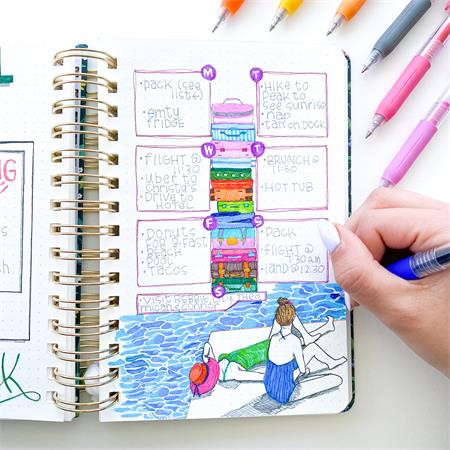 NG
M
•pack (see
list
•emty
fridge
T
•Hike to
peak to
see sunrise
nap
•tan on dock
W
•flight @
11:30
•Uber to
Christa's
•Drive to
hotel
T
•BRUNCH @
11:30
•HOT TUB
F
•Donuts
for B-fast
•Beach
•Pool
•tacos
S
Pack
•flight @
7:30 am
land @ 12:30
S
visit